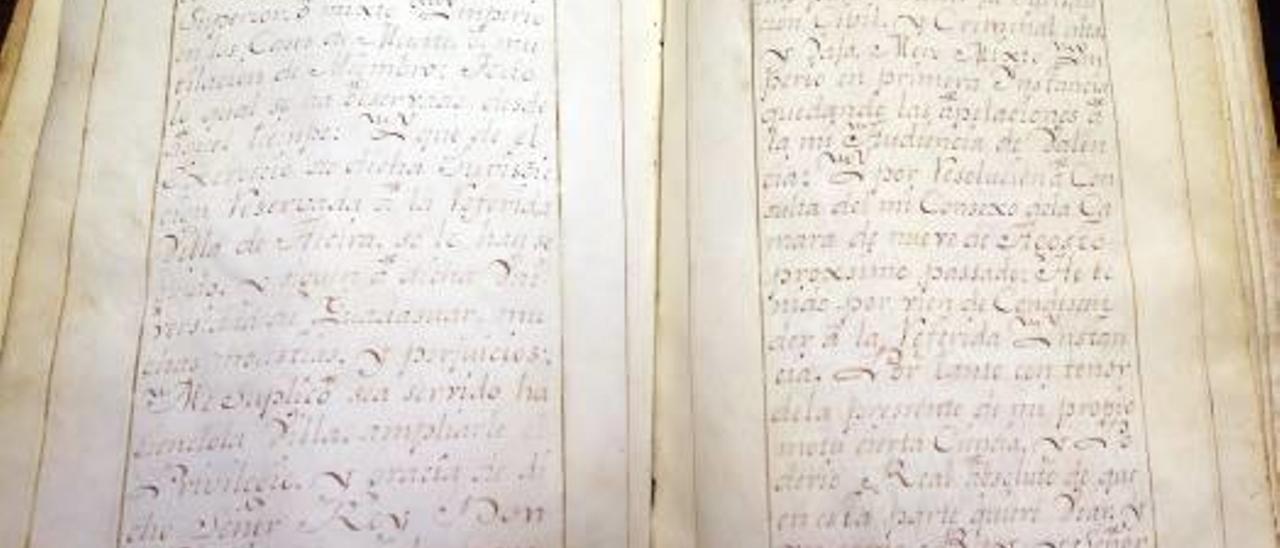 Superior, ó mixto Ymperio
en los Casos de Muerte, ó mu
tilacion de Miembro; Todo
lo qual se ha observado desde
aquel tiempo: Y que de el
Exercicio de dicha Jurisdic
cion reservada â la referida
Villa de Alcira, se le han se
guido, y siguen â dicha Vni
versidad de Guadasuar, mu
chas molestias, y perjuicios:
Me suplicó sea servido ha
ciendola Villa, ampliarle el
Privilegio, y gracia de di
cho Señor Rey Don
cion Civil, y Criminal alta
y baja, Mero Mixto Ym
perio en primera Ynstancia
quedando las apelaciones â
la mi Audiencia de Valen
cia: Y por resolucion â Con
sulta del mi Consexo de la Ca
mara de nueve de Agosto
proximo passado: He te
nido por vien de Condesen
der â la referida Ynstan
cia. Por tanto con tenor
de la presente de mi propio
motu cierta Ciencia, y Po
derio Real absoluto de que
en esta parte quiero Vsar, y